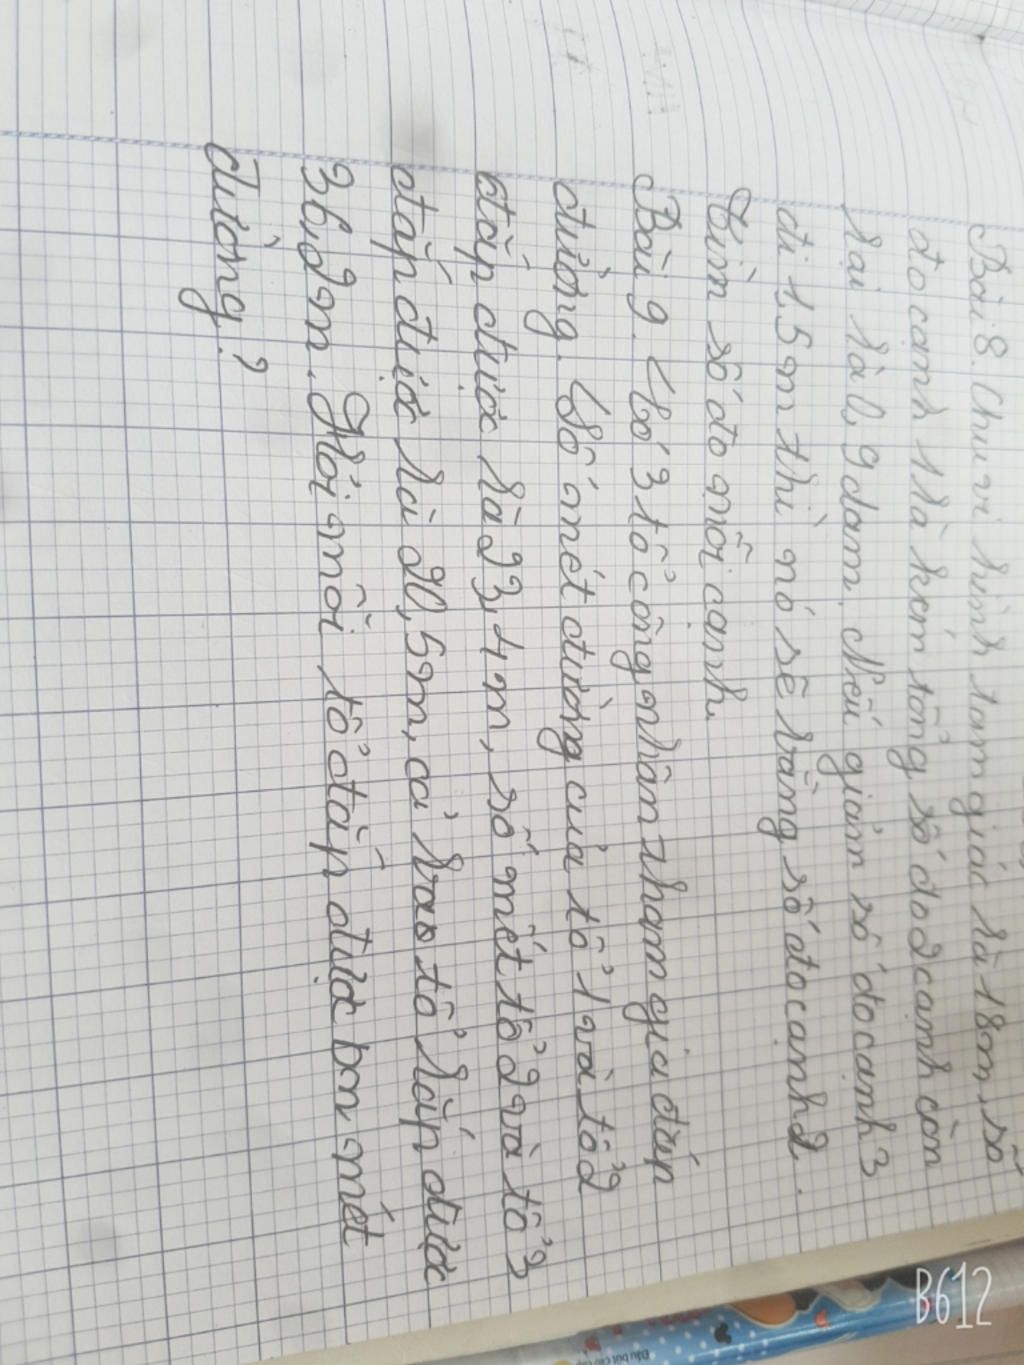 Bài 8. Chu vi hình tam giác là 18m, số
đo cạnh 1 là kém tổng số đo 2 cạnh còn
lại là 0,9 dam. Nếu giảm số đo cạnh 3
đi 1,5m thì nó sẽ bằng số đo cạnh 2.
Tìm số đo mỗi cạnh.
Bài 9. Có 3 tổ công nhân tham gia đắp
đường. Số mét đường của tổ 1 và tổ 2
đắp được là 23,4m, số mét tổ 2 và tổ 3
đắp được là 20,5m, cả ba tổ đắp được
36,2m. Hỏi mỗi tổ đắp được bn mét
đường?
B612